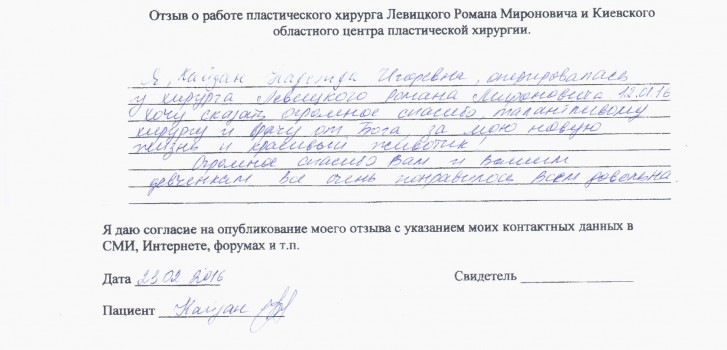 Отзыв о работе пластического хирурга Левицкого Романа Мироновича и Киевского
областного центра пластической хирургии.
Я, Кайдан Надежда Игоревна, оперировалась
у хирурга Левицкого Романа Мироновича 12.01.16
Хочу сказать огромное спасибо, талантливому
хирургу и врачу от Бога, за мою новую
жизнь и красивый животик!
Огромное спасибо Вам и Вашим
девченкам все очень понравилось Всем довольна.
Я даю согласие на опубликование моего отзыва с указанием моих контактных данных в
СМИ, Интернете, форумах и т.п.
Дата 23.02 2016 Свидетель
Пациент Кайдан